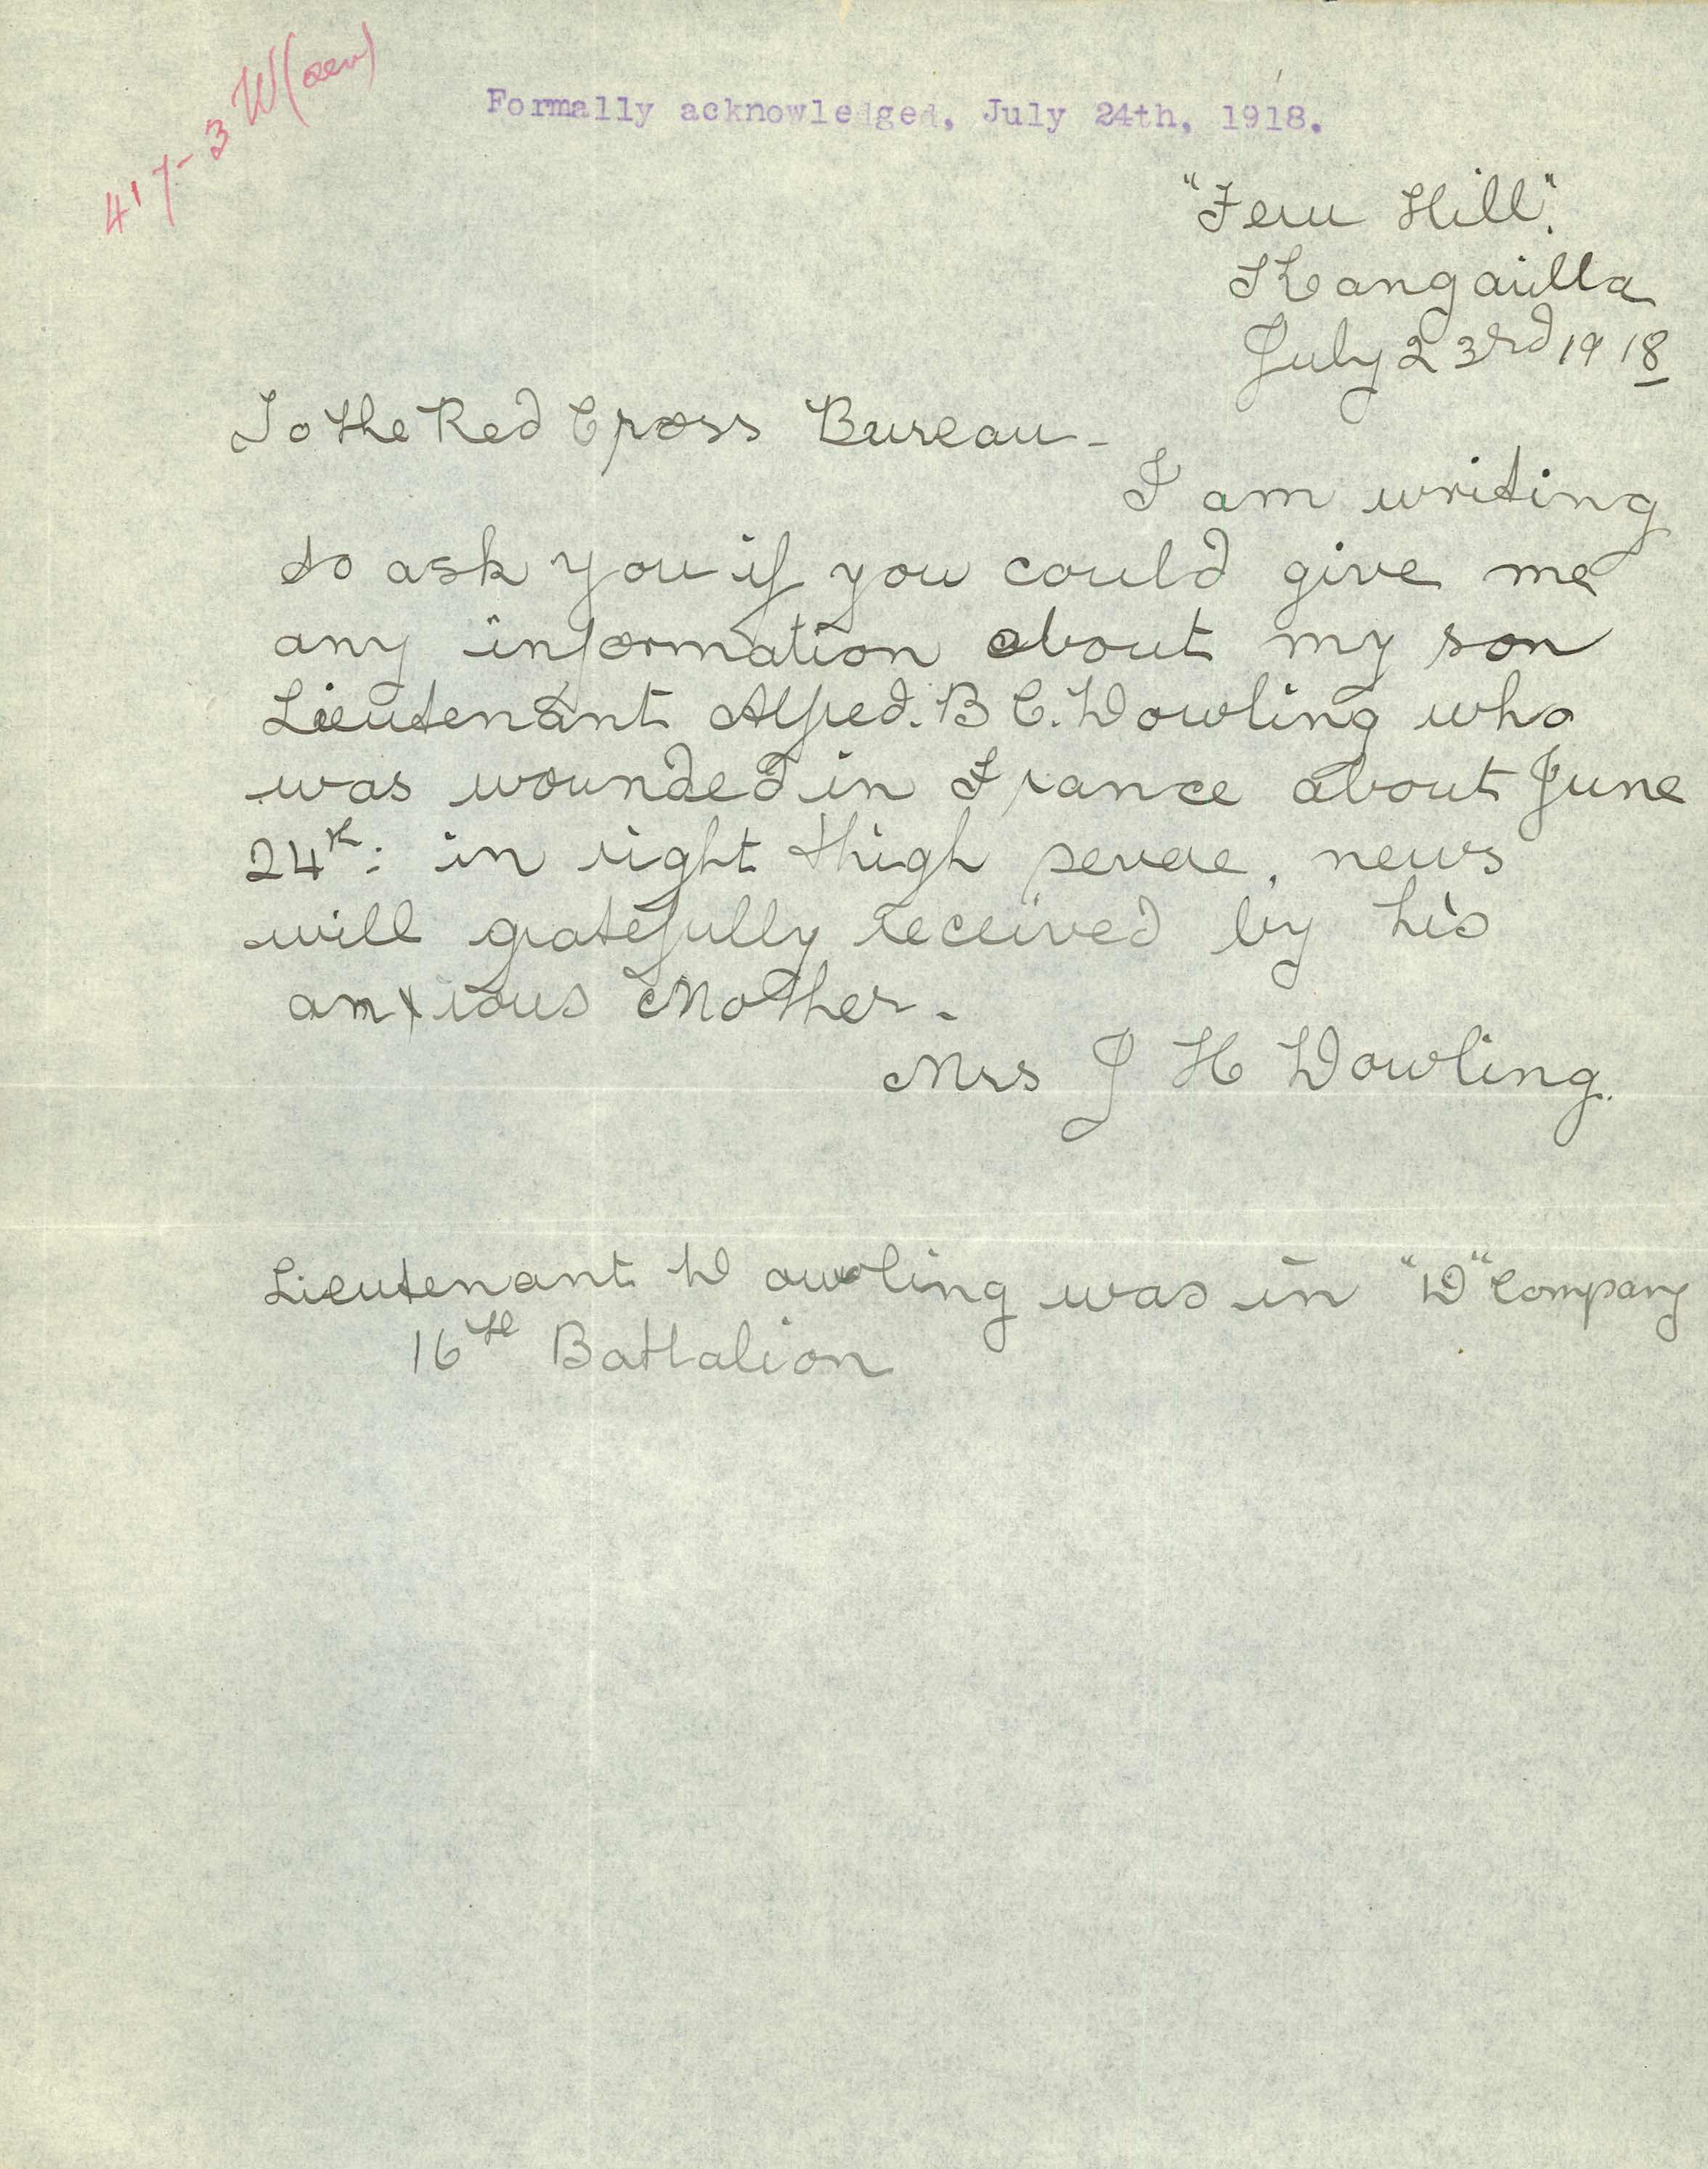 417-3 W
Formally acknowledged, July 24th, 1918.
"Fern Hill".
Kangarilla
July 23rd 1918
To the Red Cross Bureau -
I am writing
to ask you if you could give me
any information about my son
Lieutenant Alfred. B C. Dowling who
was wounded in France about June
24th: in right thigh severe, news
will gratefully received by his
anxious Mother.
Mrs J H Dowling.
Lieutenant Dowling was in "D" Company
16th Battalion